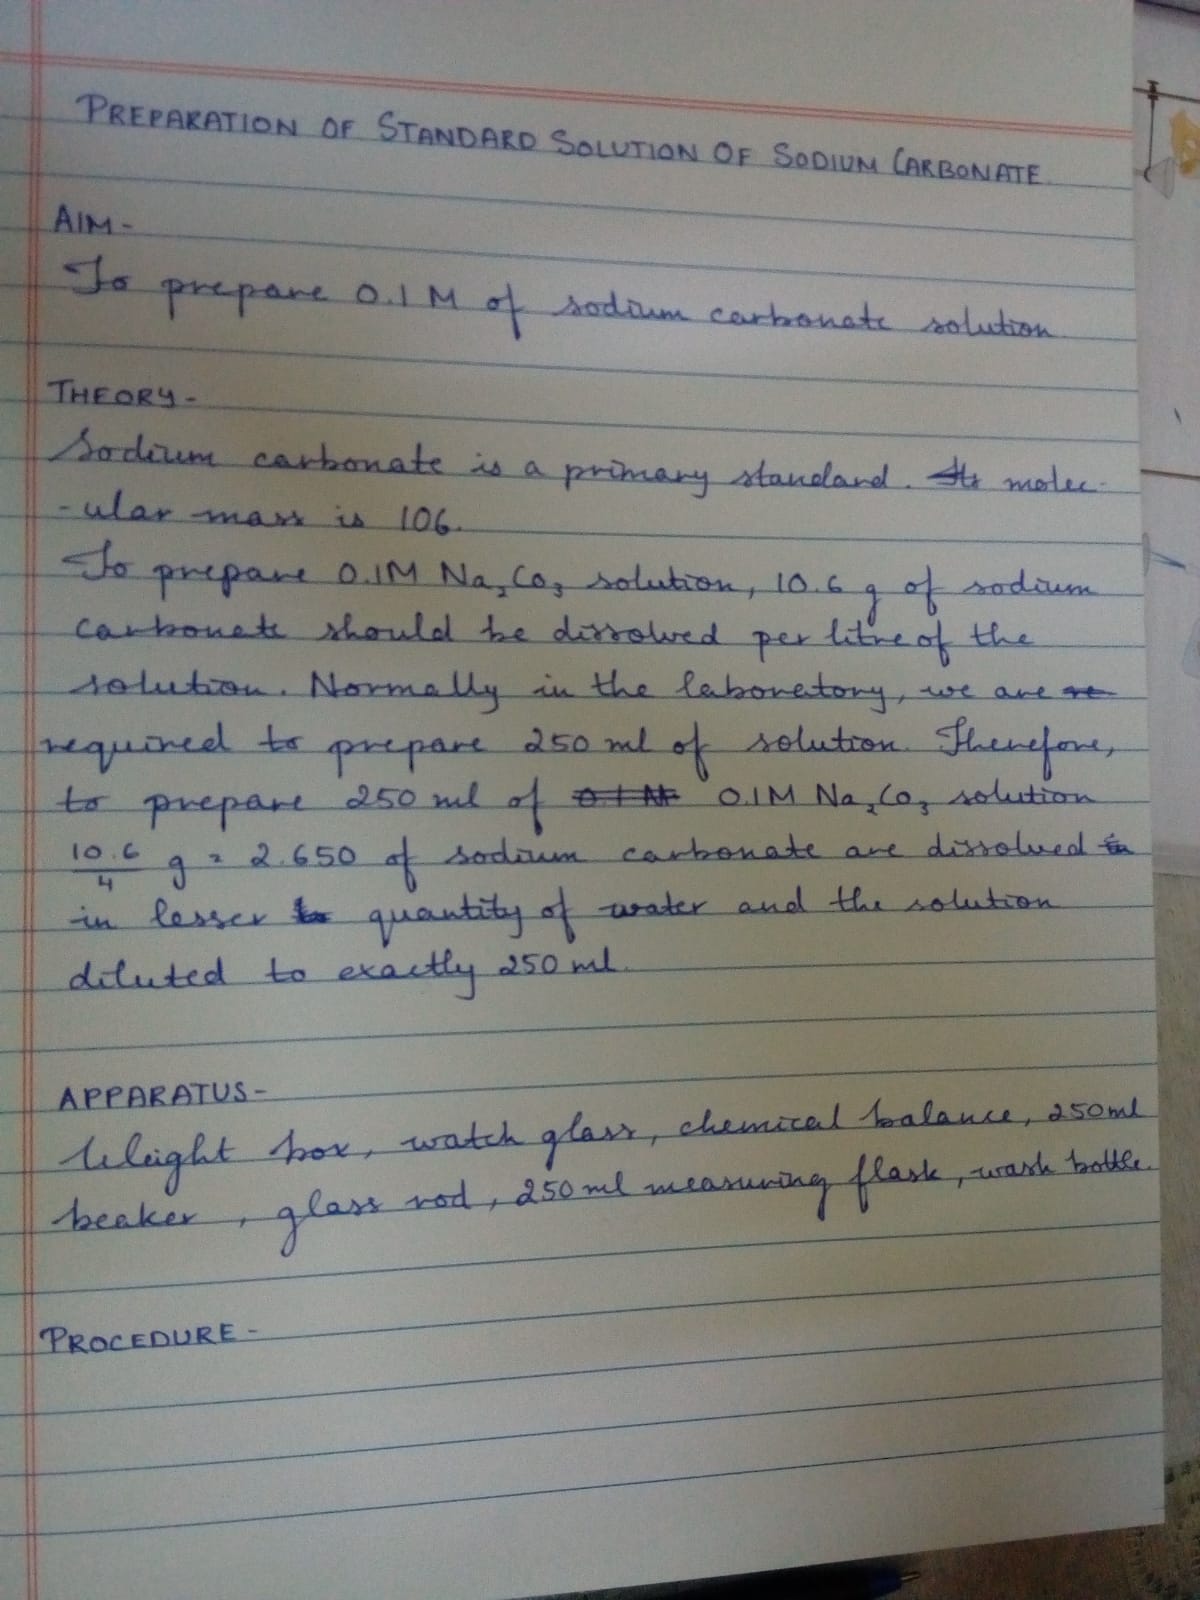 PREPARATION OF STANDARD SOLUTION OF SODIUM CARBONATE
AIM-
To prepare 0.1 M of sodium carbonate solution
THEORY-
Sodium carbonate is a primary standard. Its molec-
-ular mass is 106.
To prepare 0.1M Na₂CO₃ solution, 10.6 g of sodium
carbonate should be dissolved per litre of the
solution. Normally in the laboratory, we are re
required to prepare 250 ml of solution. Therefore,
to prepare 250 ml of 0.1 M 0.1M Na₂CO₃ solution
10.6/4 g = 2.650 of sodium carbonate are dissolved in
in lesser to quantity of water and the solution
diluted to exactly 250 ml.
APPARATUS-
Weight box, watch glass, chemical balance, 250ml
beaker, glass rod, 250 ml measuring flask, wash bottle.
PROCEDURE-